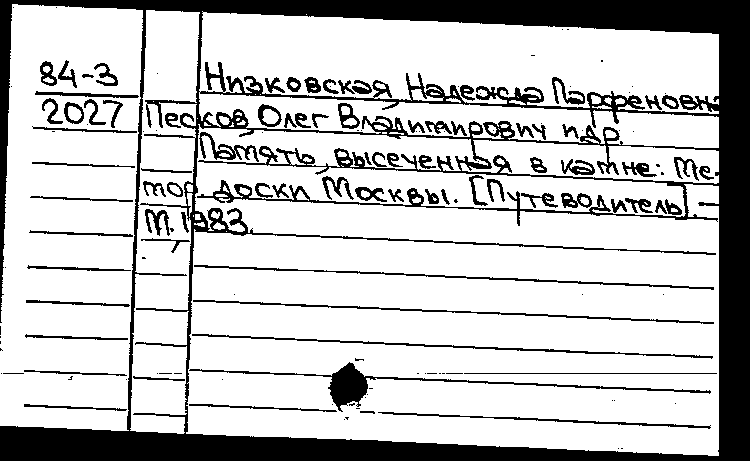 84-3 Низковская Надежда Парфеновна
2027 Песков Олег Владимирович и др.
Память, высеченная в камне: Ме-
мор. доски Москвы. [Путеводитель]. —
М. 1983.